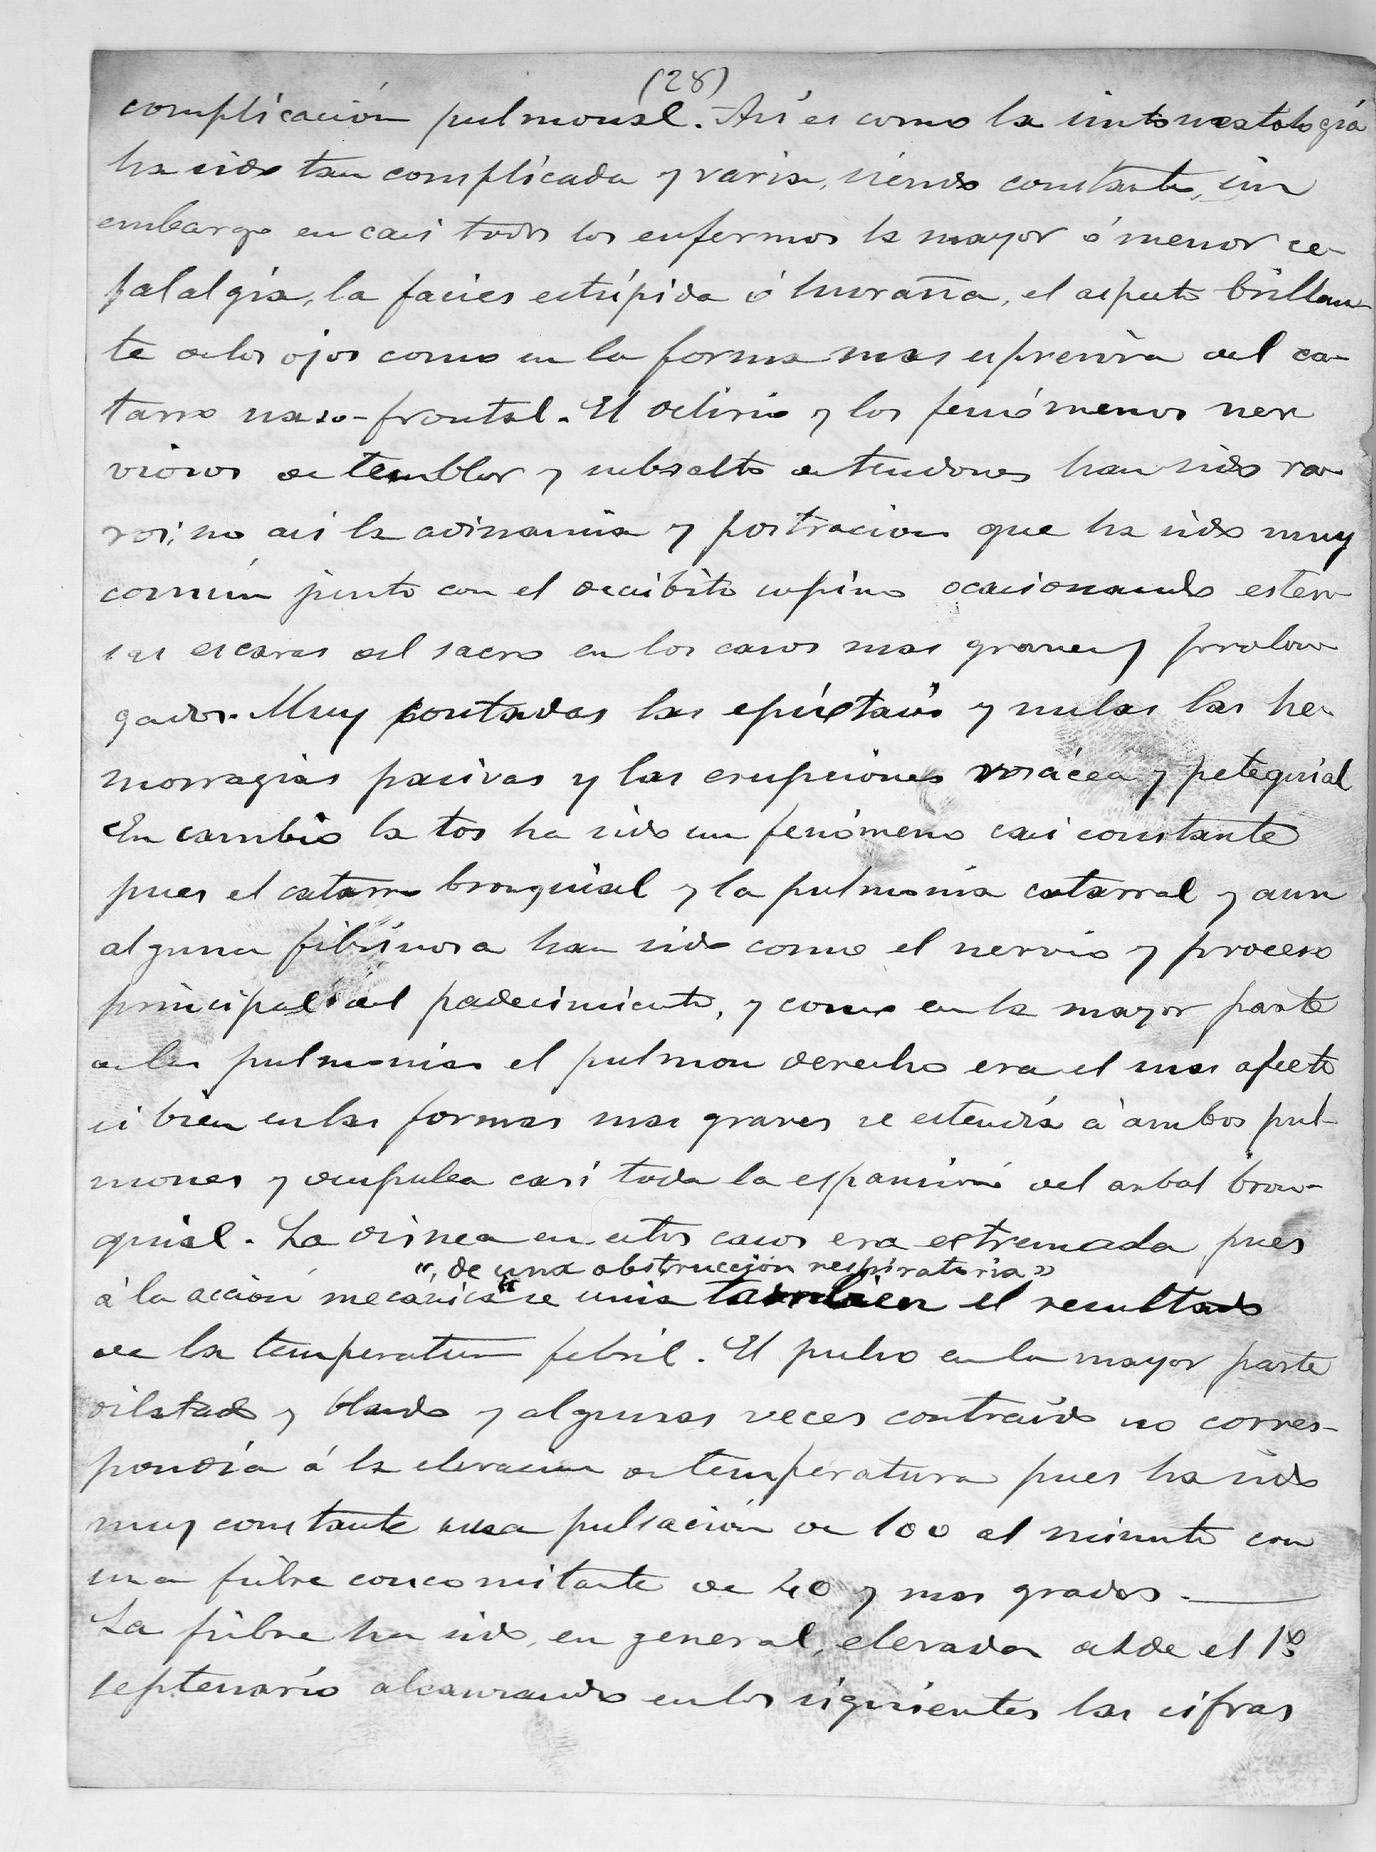 (28)
complicación pulmonal. Así es como la sintomatología
ha sido tan complicada y varia, siendo constante, sin
embargo en casi todos los enfermos la mayor ó menor ce-
falalgia, la facies estúpida ó huraña, el aspecto brillan-
te de los ojos como en la forma mas espresiva del ca-
tarro naso-frontal. El delirio y los fenómenos ner
viosos de temblor y subsalto de tendones han sido ra-
ros; no asi la adinamia y postracion que ha sido muy
común junto con el decúbito supino ocacionando esten-
sas escaras del sacro en los casos mas graves y prolon
gados. Muy contadas las epíxtasis y nulas las he-
morragias pasivas y las erupciones rosácea y petequial
En cambio la tos ha sido un fenómeno casi constante
pues el catarro bronquial y la pulmonia catarral y aun
alguna fibrinosa han sido como el nervio y proceso
principal del padecimiento, y como en la mayor parte
de las pulmonias el pulmon derecho era el mas afecto
si bien en las formas mas graves se estendía á ambos pul-
mones y ocupaba casi toda la espansión del arbol bron-
quial. La disnea en estos casos era estremada pues
“, de una obstrucción respiratoria”
á la acción mecánica “ se unia tambien el resultado
de la temperatura febril. El pulso en la mayor parte
dilatado y blando y algunas veces contraído no corres-
pondía á la elevacion de temperatura pues ha sido
muy constante una pulsación de 100 al minuto con
una fiebre concomitante de 40 y mas grados.
La fiebre ha sido, en general, elevada desde el 1º
septenario alcanzando en los siguientes las cifras